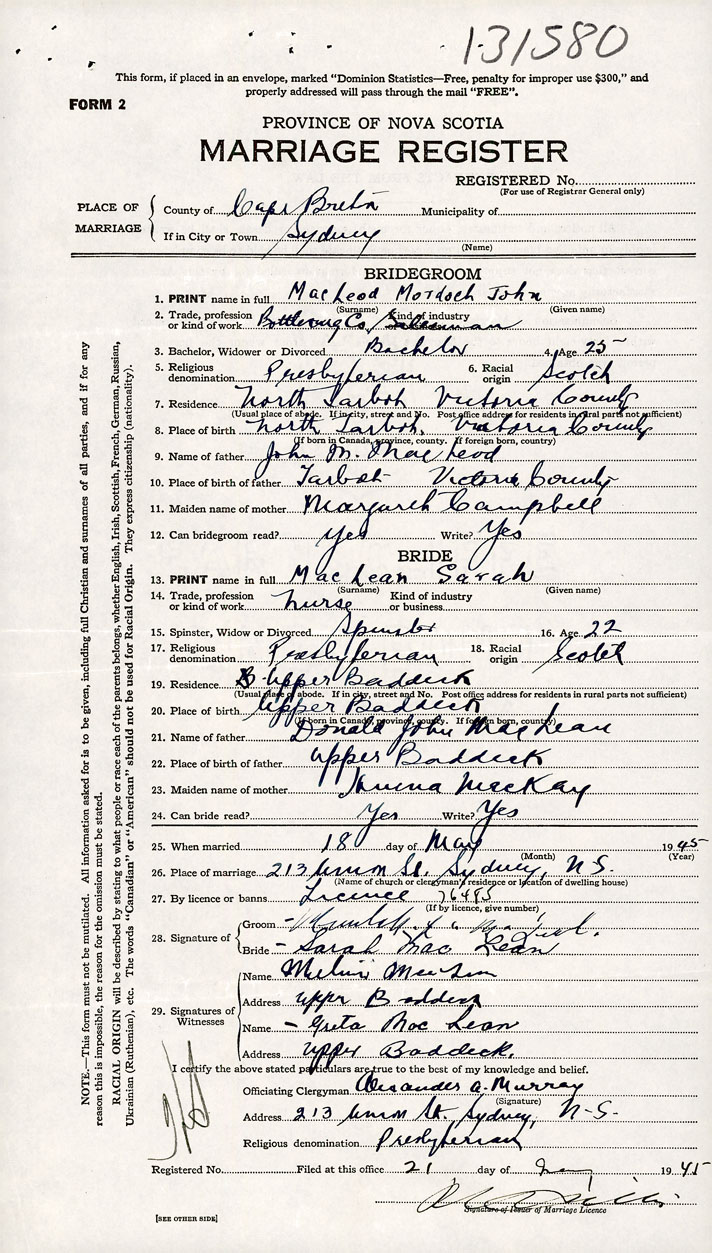 131580
This form, if placed in an envelope, marked "Dominion Statistics—Free, penalty for improper use $300," and
properly addressed will pass through the mail "FREE".
FORM 2
PROVINCE OF NOVA SCOTIA
MARRIAGE REGISTER
REGISTERED No.
(For use of Registrar General only)
PLACE OF MARRIAGE
County of Cape Breton Municipality of
If in City or Town Sydney
(Name)
BRIDEGROOM
1. PRINT name in full MacLeod Mordoch John
(Surname) (Given name)
2. Trade, profession or kind of work Bottling Co. / Kind of industry Salesman
3. Bachelor, Widower or Divorced Bachelor 4. Age 25
5. Religious denomination Presbyterian 6. Racial origin Scotch
7. Residence North Tarbot Victoria County
(Usual place of abode. If in city, street and No. Post office address for residents in rural parts not sufficient)
8. Place of birth North Tarbot, Victoria County
(If born in Canada, province, county. If foreign born, country)
9. Name of father John M. MacLeod
10. Place of birth of father Tarbot Victoria County
11. Maiden name of mother Margaret Campbell
12. Can bridegroom read? Yes Write? Yes
BRIDE
13. PRINT name in full MacLean Sarah
(Surname) (Given name)
14. Trade, profession or kind of work Nurse Kind of industry or business
15. Spinster, Widow or Divorced Spinster 16. Age 22
17. Religious denomination Presbyterian 18. Racial origin Scotch
19. Residence Upper Baddeck
(Usual place of abode. If in city, street and No. Post office address for residents in rural parts not sufficient)
20. Place of birth Upper Baddeck
(If born in Canada, province, county. If foreign born, country)
21. Name of father Donald John MacLean
22. Place of birth of father Upper Baddeck
23. Maiden name of mother MacKay
24. Can bride read? Yes Write? Yes
25. When married 18 day of May 1945
(Month) (Year)
26. Place of marriage 213 Union St. Sydney, N.S.
(Name of church or clergyman's residence or location of dwelling house)
27. By licence or banns Licence 76485
(If by licence, give number)
28. Signature of
Groom
Bride Sarah MacLean
29. Signatures of Witnesses
Name
Address Upper Baddeck
Name Greta MacLean
Address Upper Baddeck.
I certify the above stated particulars are true to the best of my knowledge and belief.
Officiating Clergyman Alexander A. Murray
(Signature)
Address 213 Union St. Sydney, N.S.
Religious denomination Presbyterian
Registered No. Filed at this office 21 day of May 1945
Signature of Issuer of Marriage Licence
[SEE OTHER SIDE]
NOTE.—This form must not be mutilated. All information asked for is to be given, including full Christian and surnames of all parties, and if for any
reason this is impossible, the reason for the omission must be stated.
RACIAL ORIGIN will be described by stating to what people or race each of the parents belongs, whether English, Irish, Scottish, French, German, Russian,
Ukrainian (Ruthenian), etc. The words "Canadian" or "American" should not be used for Racial Origin. They express citizenship (nationality).